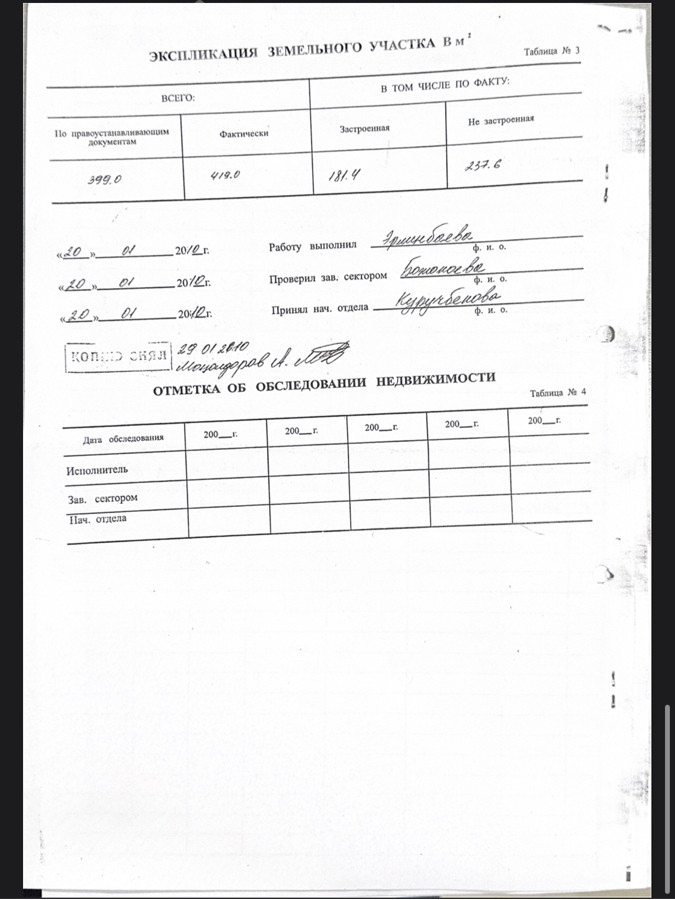 ЭКСПЛИКАЦИЯ ЗЕМЕЛЬНОГО УЧАСТКА В м²
Таблица № 3
ВСЕГО:
В ТОМ ЧИСЛЕ ПО ФАКТУ:
По правоустанавливающим
документам
Фактически
Застроенная
Не застроенная
399.0
419.0
181.4
237.6
«20» 01 2010г. Работу выполнил Эрминбаева
ф. и. о.
«20» 01 2010г. Проверил зав. сектором
ф. и. о.
«20» 01 2010г. Принял нач. отдела Куручбекова
ф. и. о.
КОПИЮ СНЯЛ
29 01 2010
А.
ОТМЕТКА ОБ ОБСЛЕДОВАНИИ НЕДВИЖИМОСТИ
Таблица № 4
Дата обследования 200__г. 200__г. 200__г. 200__г. 200__г.
Исполнитель
Зав. сектором
Нач. отдела